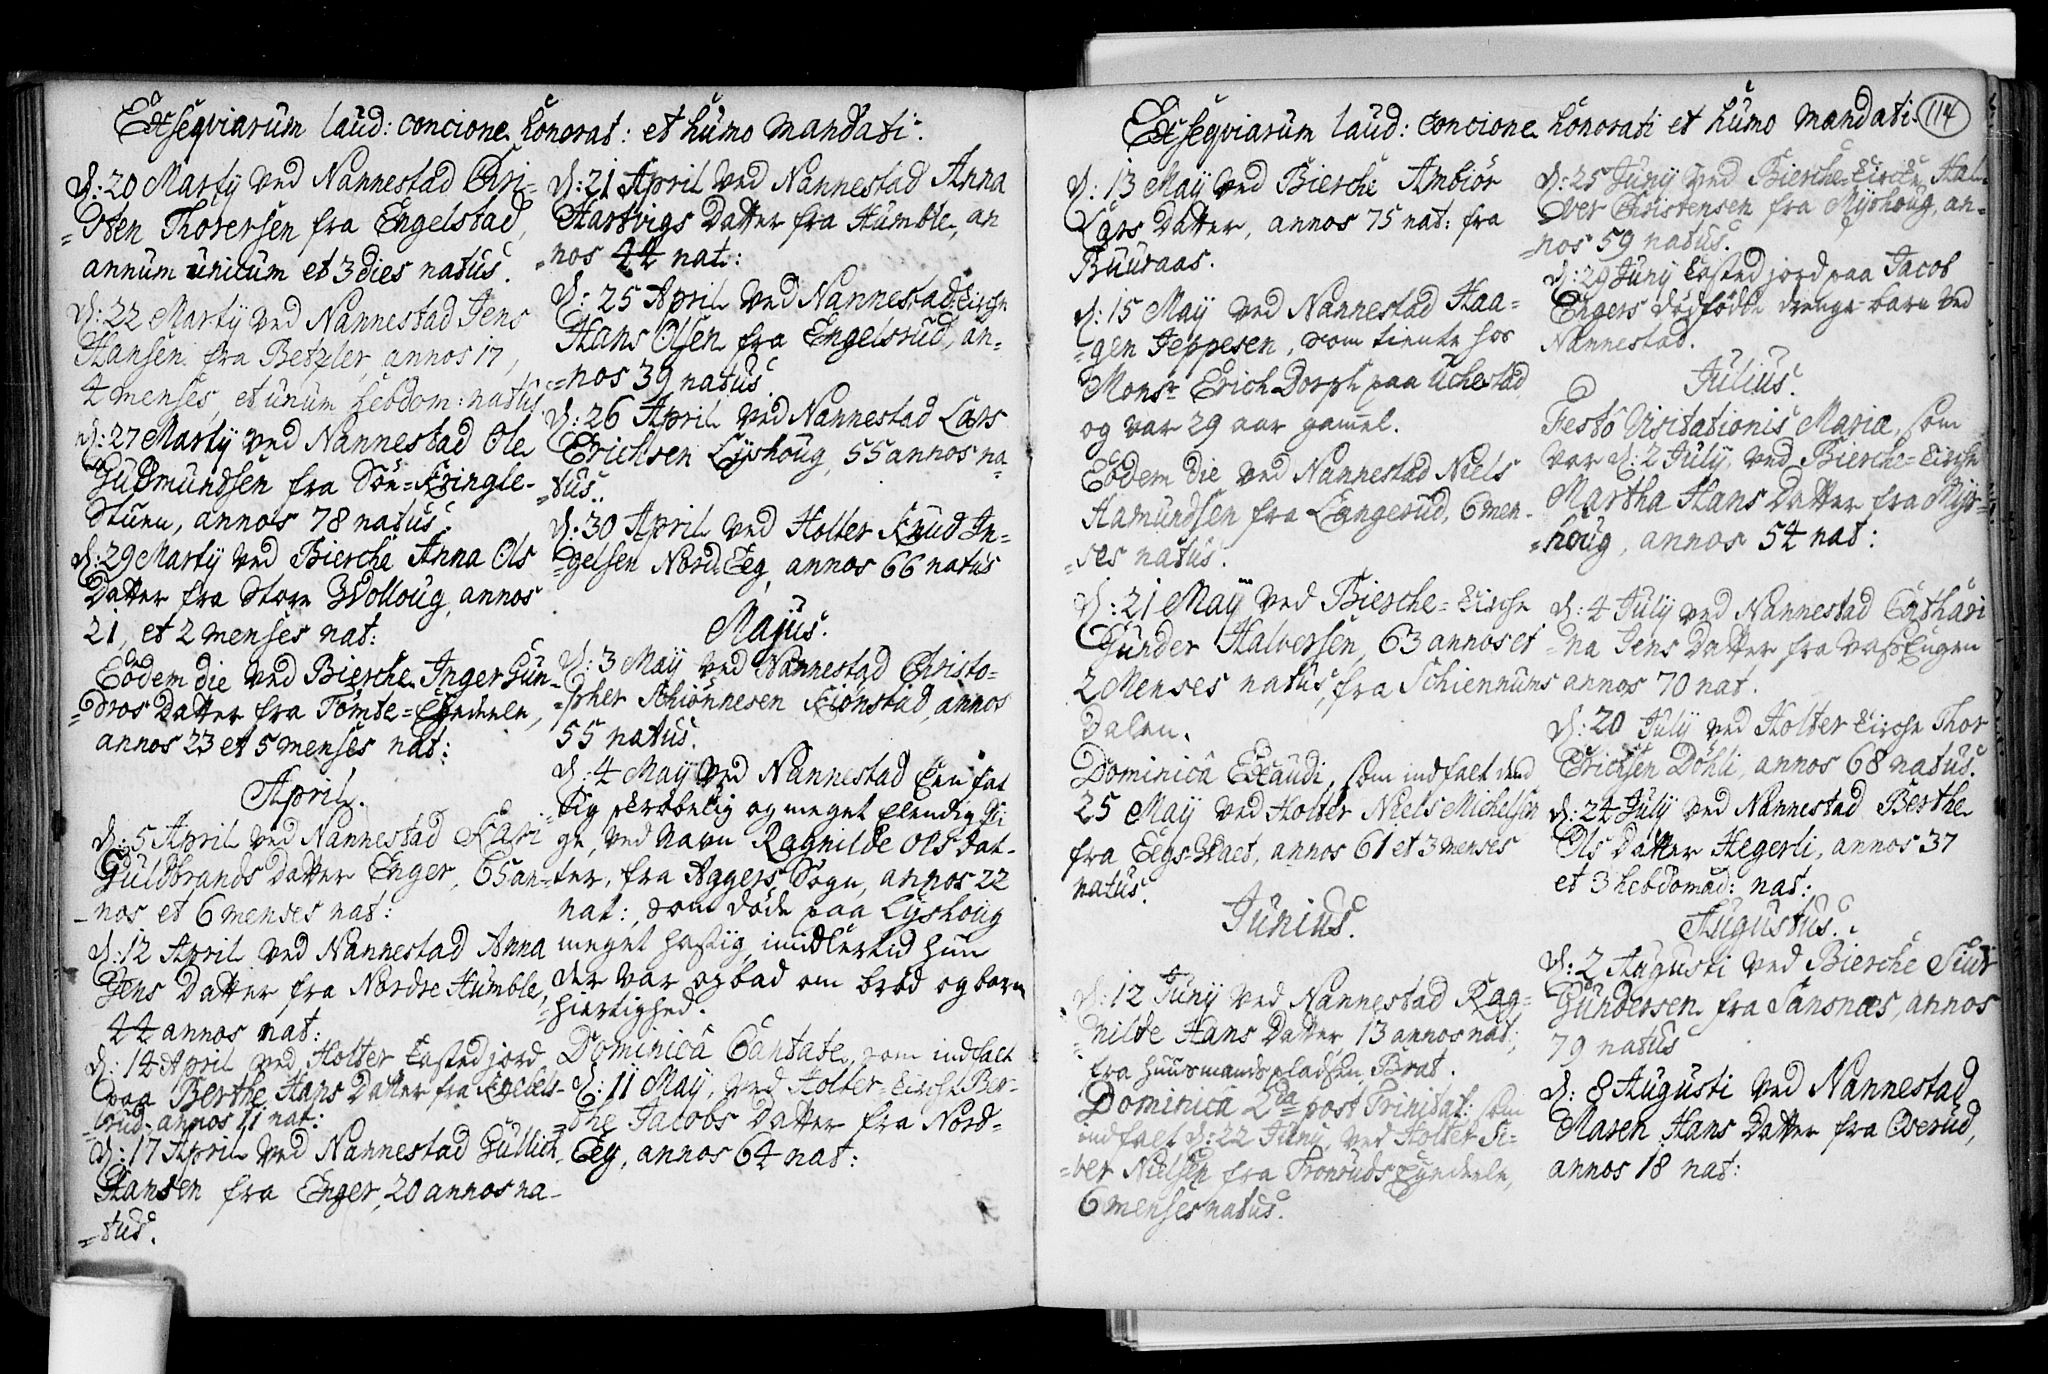 Exseqviarum laud: concione honorat: et humo mandati.
d: 20 Martij ved Nannestad Chri=
=sten Thorersen fra Engelstad,
annum unicum et 3 dies natus.
d: 22 Martij ved Nannestad Jens
Hansen fra Betzler, annos 17,
4 menses, et unum hebdom: natus.
d: 27 Martij ved Nannestad Ole
Gudmundsen fra Sön=Kringle-
Stuen, annos 78 natus.
d: 29 Martij ved Bierche Anna Ols
Datter fra Store Wolloug, annos
21, et 2 menses nat:
Eodem die ved Bierche Inger Gun=
=dros Datter fra Tömte=Eyendele,
annos 23 et 5 menses nat:
April.
d: 5 April ved Nannestad Kari
Guldbrands Datter Enger, 65 an=
=nos et 6 menses nat:
d: 12 April ved Nannestad Anna
Jens Datter fra Nordre Humble,
44 annos nat:
d: 14 April ved Holter kasted jord
paa Berthe Hans Datter fra
=rud, annos 11 nat:
d: 17 April ved Nannestad Gullich
Hansen fra Enger, 20 annos na=
=tus.
d: 21 April ved Nannestad Anna
Hartvigs Datter fra Humble, an
=nos 44 nat:
d: 25 April ved Nannestad Kirche
Hans Olsen fra Engelsrud, an=
=nos 39 natus.
d: 26 April ved Nannestad Lars
Erichsen Lyshoug, 55 annos na=
=tus.
d: 30 April ved Holter Knud In=
=gelsen Nord Eeg, annos 66 natus
Majus.
d: 3 Maij ved Nannestad Christo=
=pher Schiönnesen Kiönstad, annos
55 natus.
d: 4 Maij ved Nannestad Een fat
=tig skröbelig og meget elendig Pi
ge, ved Navn Ragnilde Ols Dat=
=ter, fra Aggers Sogn, annos 22
nat: som döde paa Lyshoug
meget hastig, imidlertid hun
der var og bad om bröd og barm
=hiertighed.
Dominica Cantate, som indfalt
d: 11 Maij, ved Holter=Kirche Ber=
=the Jacobs Datter fra Nord=
Eeg, annos 64 nat:
Exseqviarum laud: concione honorati et humo mandati.
114
d: 13 Maij ved Bierche Ambiör
Lars Datter, annos 75 nat: fra
Buuraas.
d: 15 Maij ved Nannestad Haa=
=gen Jeppesen, som tiente hos
Monsr Erich Dorph paa Uchestad
og var 29 aar gamel.
Eodem die ved Nannestad Niels
Hamundsen fra Langerud, 6 men-
=ses natus.
d: 21 Maij ved Bierche=Kirche
Gunder Halversen, 63 annos et
2 Menses natus, fra Schiennums
Dalen.
Dominica Exaudi, som indfalt den
25 Maij ved Holter Niels Michelsen
fra Eegs=Waet, annos 61 et 3 menses
natus.
Junius.
d: 12 Junij ved Nannestad Rag=
=nilde Hans Datter, 13 annos nat:,
fra huusmandspladsen Brat.
Dominica 2da post Trinitat: som
indfalt d: 22 Junij ved Holter Si=
=ver Nielsen fra Tronruds Eyendele,
6 menses natus.
d: 25 Junij ved Bierche=Kirche Hal=
Over Christensen fra Myrhoug, an=
=nos 59 natus.
d: 29 Junij kasted jord paa Jacob
Engers dödfödde drenge barn ved
Nannestad.
Julius.
Festo Visitationis Mariæ, som
var d: 2 Julij, ved Bierche=Kirche
Martha Hans Datter fra Myr=
=houg, annos 54 nat:
d: 4 Julij ved Nannestad Cathari
=na Jens Datter fra
annos 70 nat.
d: 20 Julij ved Holter Kirche Thor
Erichsen Döhli, annos 68 natus.
d: 24 Julij ved Nannestad Berthe
Ols Datter Hegerli, annos 37
et 3 hebdomad: nat:
Augustus.
d: 2 Augusti ved Bierche Siur
Gundersen fra Sansnæs, annos
79 natus
d: 8 Augusti ved Nannestad
Maren Hans Datter fra Oserud,
annos 18 nat: